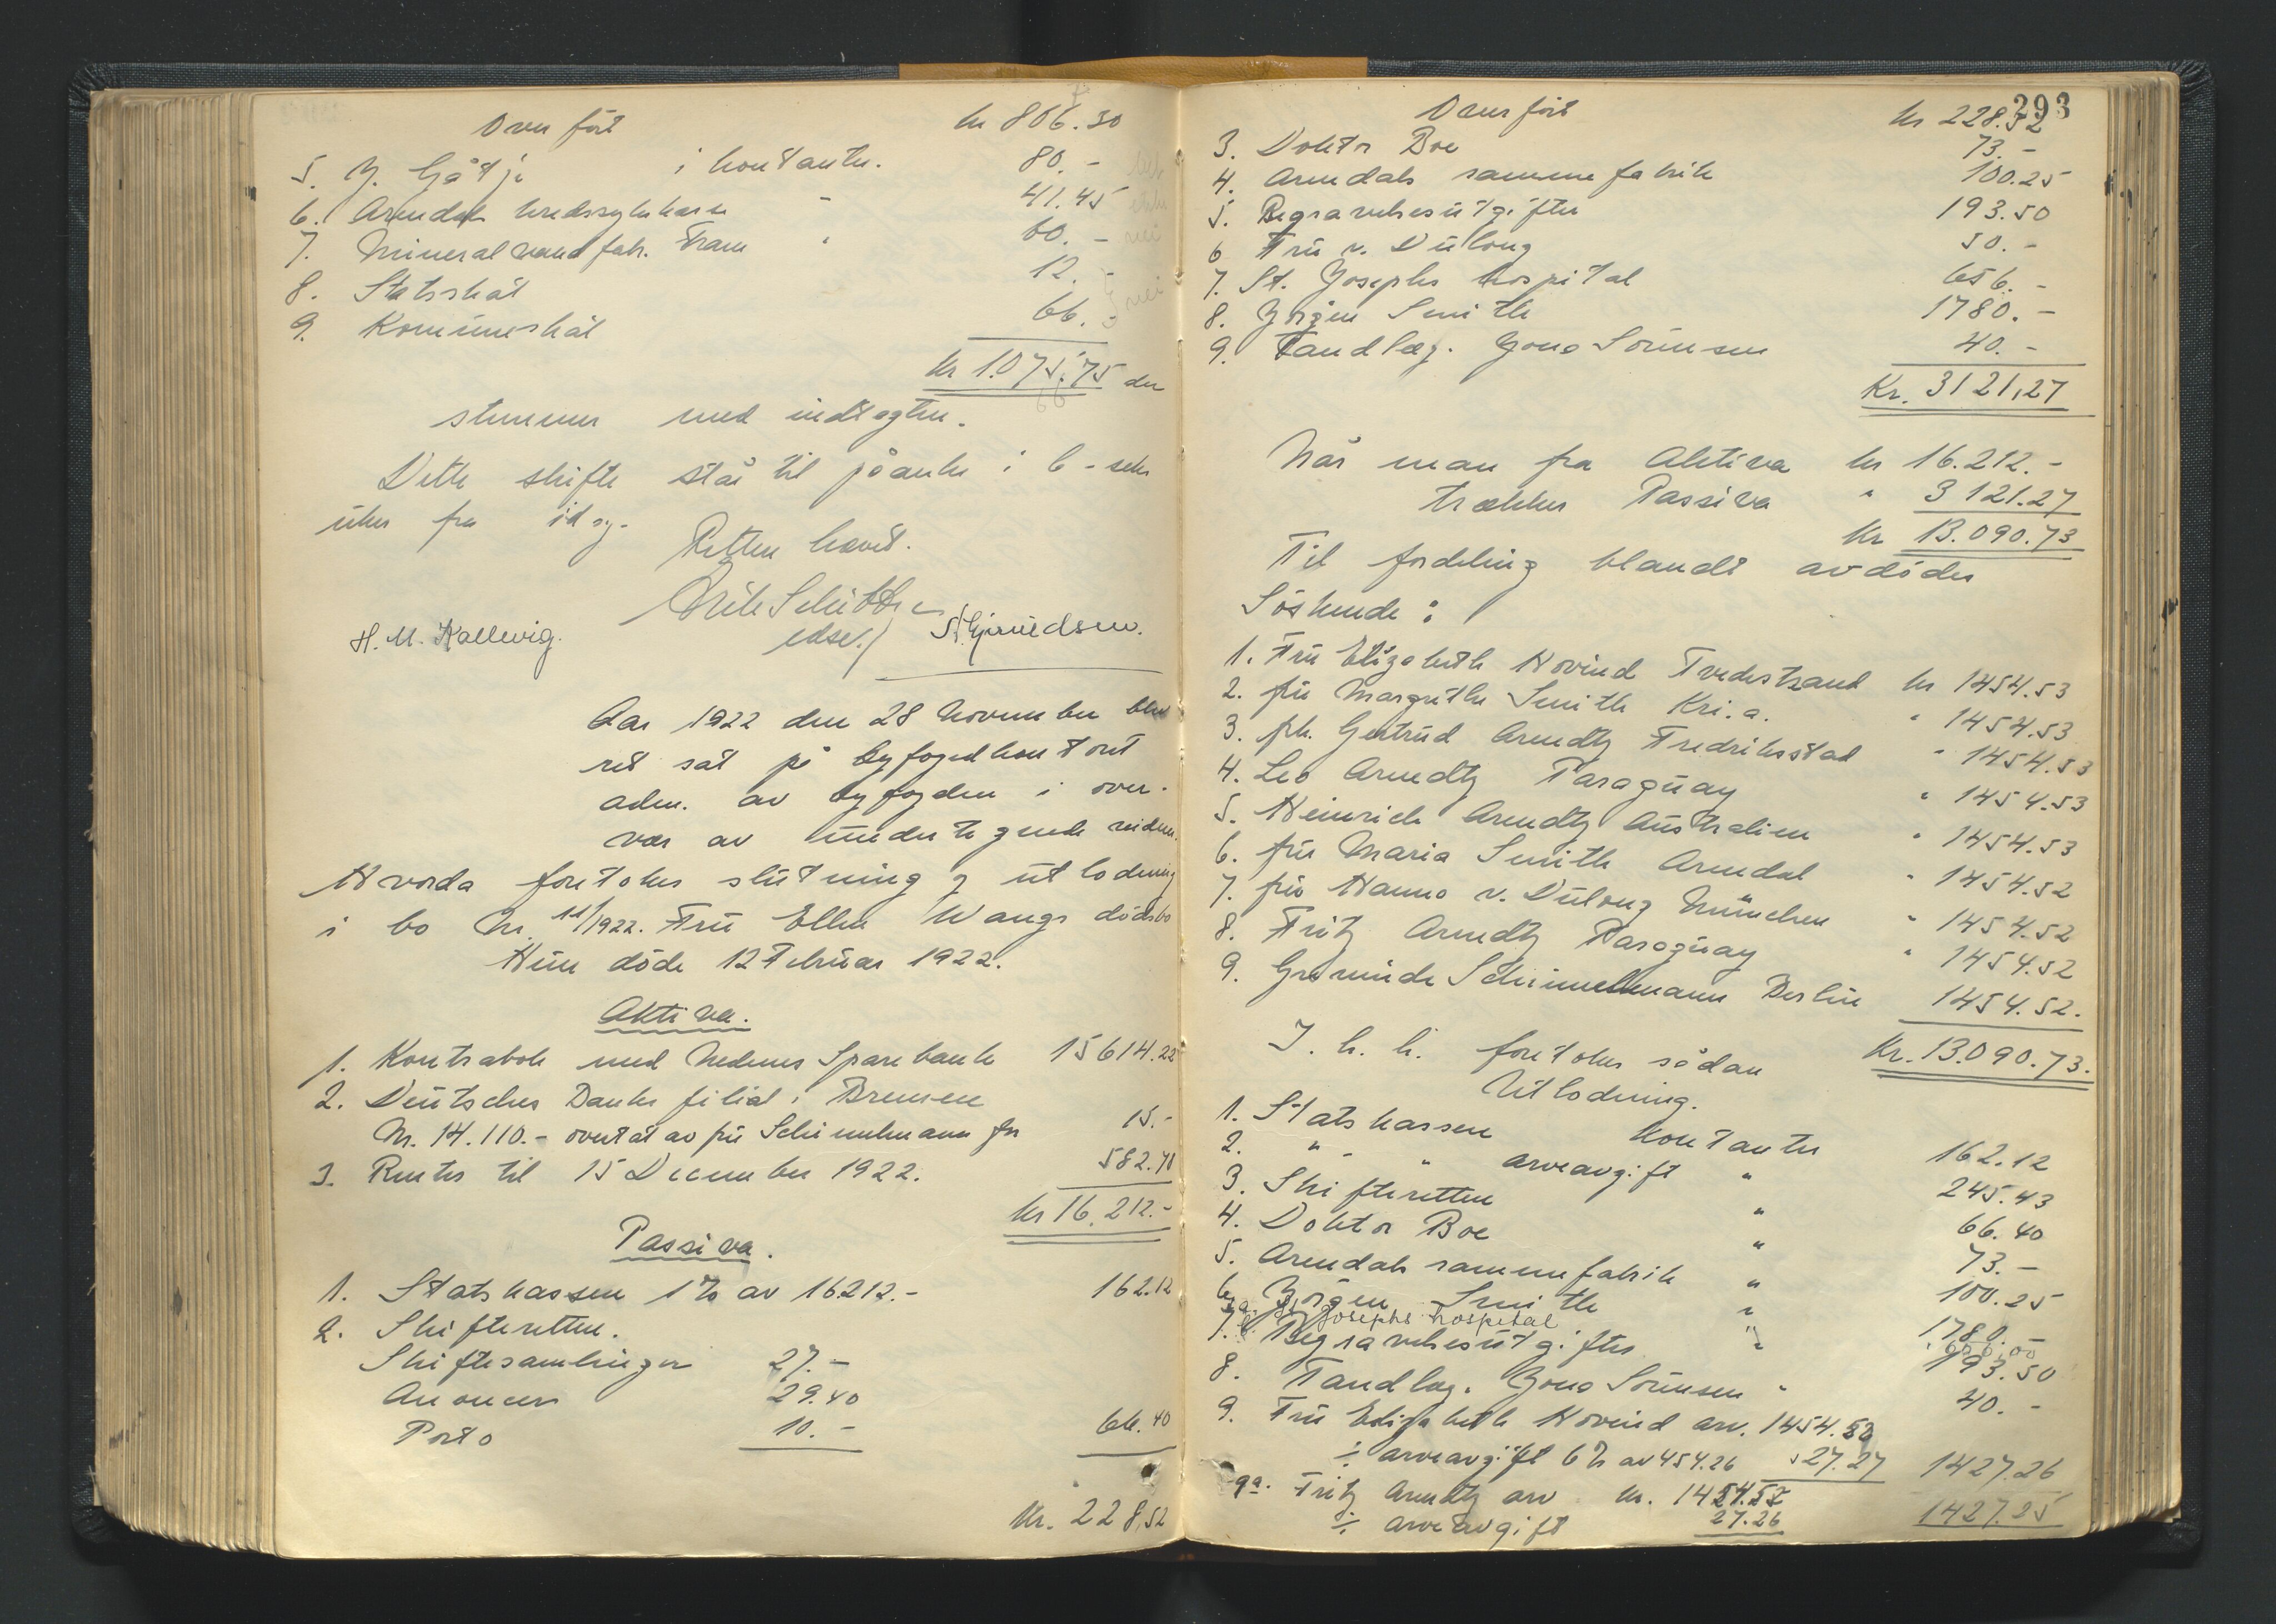 Overført kr 806.30
5. J. Gåtje i kontanter. 80.-
6. Arendal kredssykekasse " 41.45
7. Mineralvandfabr. Fram " 60.-
8. Statsskat 12.-
9. Kommuneskat 66.-
Kr 1.075.75 der
stemmer med indtægten.
Dette skifte står til påanke i 6 - seks
uker fra idag.
Retten hævet.
H. M. Kallevig.
Aar 1922 den 28 November blev
ret sat på byfogedkontoret
adm. av byfogden i over-
vær av undertegnede vidner.
Hvorda foretokes slutning og utlodning
i bo Nr. 11/1922. Fru Ellen Wangs dødsbo
Hun døde 12 Februar 1922.
Aktiva.
1. Kontrabok med Nedenes Sparebank 15614.22
2. Deutsches Banks filial i Bremen
M. 14.110.- overtat av fru Schimmelmann for 15.-
3. Renter til 15 December 1922. 582.78
kr 16.212.-
Passiva.
1. Statskassen 1% av 16212.- 162.12
2. Skifteretten.
Skiftesamlinger 27.-
Anoncer 29.40
Porto 10.- 66.40
Kr. 228,52
293
Overført kr 228.52
3. Doktor Boe 73.-
4. Arendals rammefabrik 100.25
5. Begravelsesutgifter 193.50
6 Fru v. Dulong 50.-
7. St. Josephs hospital 656.-
8. Jørgen Smith 1780.-
9. Tandlæg. Jons Sørensen 40.-
Kr. 3121,27
Når man fra Aktiva kr 16.212.-
trækker Passiva " 3121.27
Kr 13.090.73
Til fordeling blandt avdødes
Søskende:
1. Fru Elizabeth Hovind Tvedestrand kr 1454.53
2. fru Margrethe Smith Kri.a. " 1454.53
3. frk. Gertrud Arendtz Fredriksstad " 1454.53
4. Leo Arendtz Paraguay " 1454.53
5. Heinrich Arendtz Australien " 1454.53
6. fru Maria Smith Arendal " 1454.52
7. fru Hanna v. Dulong München " 1454.52
8. Fritz Arendtz Paraguay " 1454.52
9. Schimmelmann Berlin 1454.52.
Kr. 13.090.73.
I. h. h. foretokes sådan
Utlodning.
1. Statskassen Kontanter 162.12
2. " - " arveavgift " 245.43
3. Skifteretten " 66.40
4. Doktor Boe " 73.-
5. Arendals rammefabrik " 100.25
6. Jørgen Smith " 1780.-
St. Josephs hospital " 656,00
7. Begravelsesutgifter " 193.50
8. Tandlæg. Jons Sørensen " 40.-
9. Fru Elizabeth Hovind arv. 1454.53
÷ arveavgift 6% av 454.26 27.27 1427.26
9a. Fritz Arendtz arv kr. 1454.52
÷ arveavgift 27.26 1427.25